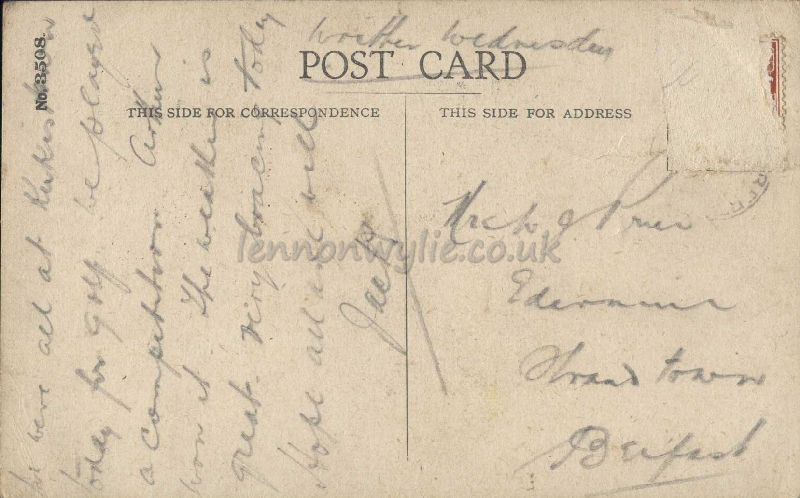 No. 3508.
Written Wednesday
POST CARD
THIS SIDE FOR CORRESPONDENCE
THIS SIDE FOR ADDRESS
We were all at
today for Golf. he played
a competition
won it. The weather is
great. Very bracing today
Hope all are well
Jack
Price
Strandtown
Belfast
lennonwylie.co.uk